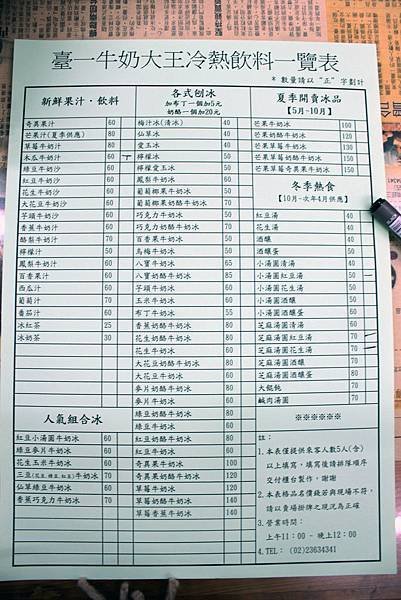 臺一牛奶大王冷熱飲料一覽表
* 數量請以“正”字劃計
新鮮果汁．飲料
奇異果汁 60
芒果汁(夏季供應) 80
草莓牛奶汁 80
木瓜牛奶汁 60
綠豆牛奶沙 60
紅豆牛奶沙 60
花生牛奶沙 60
大花豆牛奶沙 60
芋頭牛奶沙 60
香蕉牛奶汁 60
酪梨牛奶汁 70
檸檬汁 50
鳳梨牛奶汁 60
百香果汁 50
西瓜汁 60
葡萄汁 70
番茄汁 60
冰紅茶 25
冰奶茶 30
人氣組合冰
紅豆小湯圓牛奶冰 60
綠豆麥片牛奶冰 60
花生玉米牛奶冰 60
三豆(花豆,綠豆,紅豆)牛奶冰 70
仙草綠豆牛奶冰 60
香蕉巧克力牛奶冰 70
各式刨冰
加布丁一個加5元
奶酪一個加20元
梅汁冰(清冰) 40
仙草冰 40
愛玉冰 40
檸檬冰 50
檸檬愛玉冰 50
鳳梨牛奶冰 60
葡萄椰果牛奶冰 50
葡萄椰果奶酪牛奶冰 70
巧克力牛奶冰 50
巧克力奶酪牛奶冰 70
百香果牛奶冰 50
烏梅牛奶冰 50
八寶牛奶冰 65
八寶奶酪牛奶冰 85
芋頭牛奶冰 60
玉米牛奶冰 60
布丁牛奶冰 55
香蕉奶酪牛奶冰 80
花生奶酪牛奶冰 80
花生牛奶冰 60
大花豆奶酪牛奶冰 80
大花豆牛奶冰 60
麥片奶酪牛奶冰 80
麥片牛奶冰 60
綠豆奶酪牛奶冰 80
綠豆牛奶冰 60
紅豆奶酪牛奶冰 80
紅豆牛奶冰 60
奇異果牛奶冰 100
奇異果奶酪牛奶冰 120
草莓牛奶冰 120
草莓奶酪牛奶冰 140
草莓香蕉牛奶冰
夏季開賣冰品
【5月~10月】
芒果牛奶冰 100
芒果奶酪牛奶冰 120
芒果草莓牛奶冰 130
芒果草莓奶酪牛奶冰 150
芒果草莓奇異果牛奶冰 150
冬季熱食
【10月-次年4月供應】
紅豆湯 40
花生湯 40
酒釀 40
酒釀蛋 50
小湯圓清湯 40
小湯圓紅豆湯 50
小湯圓花生湯 50
小湯圓酒釀 50
小湯圓酒釀蛋 60
芝麻湯圓清湯 60
芝麻湯圓紅豆湯 70
芝麻湯圓花生湯 70
芝麻湯圓酒釀 70
芝麻湯圓酒釀蛋 80
大餛飩 70
鹹肉湯圓 70
※※※※※※
註：
1.本表僅提供來客人數5人(含)
以上填寫，填寫後請排隊順序
交付櫃台製作，謝謝
2.本表格品名價錢若與現場不符，
請以賣場掛牌之現況為正確
3.營業時間：
上午11:00 - 晚上12:00
4.TEL： (02)23634341